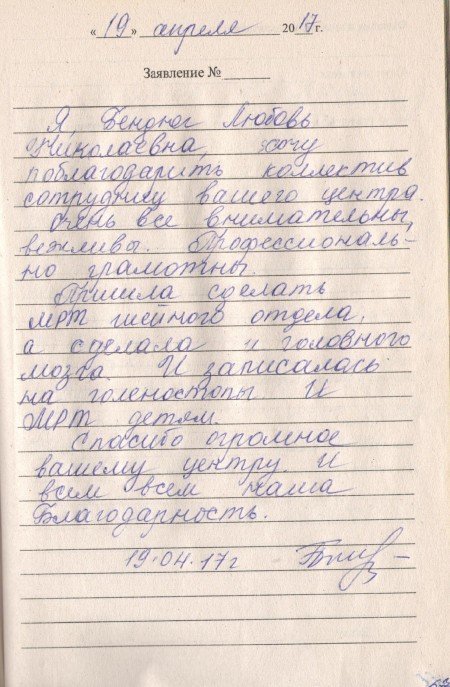 « 19 » апреля 2017 г.
Заявление №
Я, Бендюг Любовь
Николаевна, хочу
поблагодарить коллектив
сотруднику вашего центра.
Очень все внимательны,
вежливы. Профессиональ-
но грамотны.
Пришла сделать
МРТ шейного отдела,
а сделала и головного
мозга. И записалась
на голеностопы. И
МРТ детям.
Спасибо огромное
вашему центру. И
всем всем наша
Благодарность.
19.04.17г